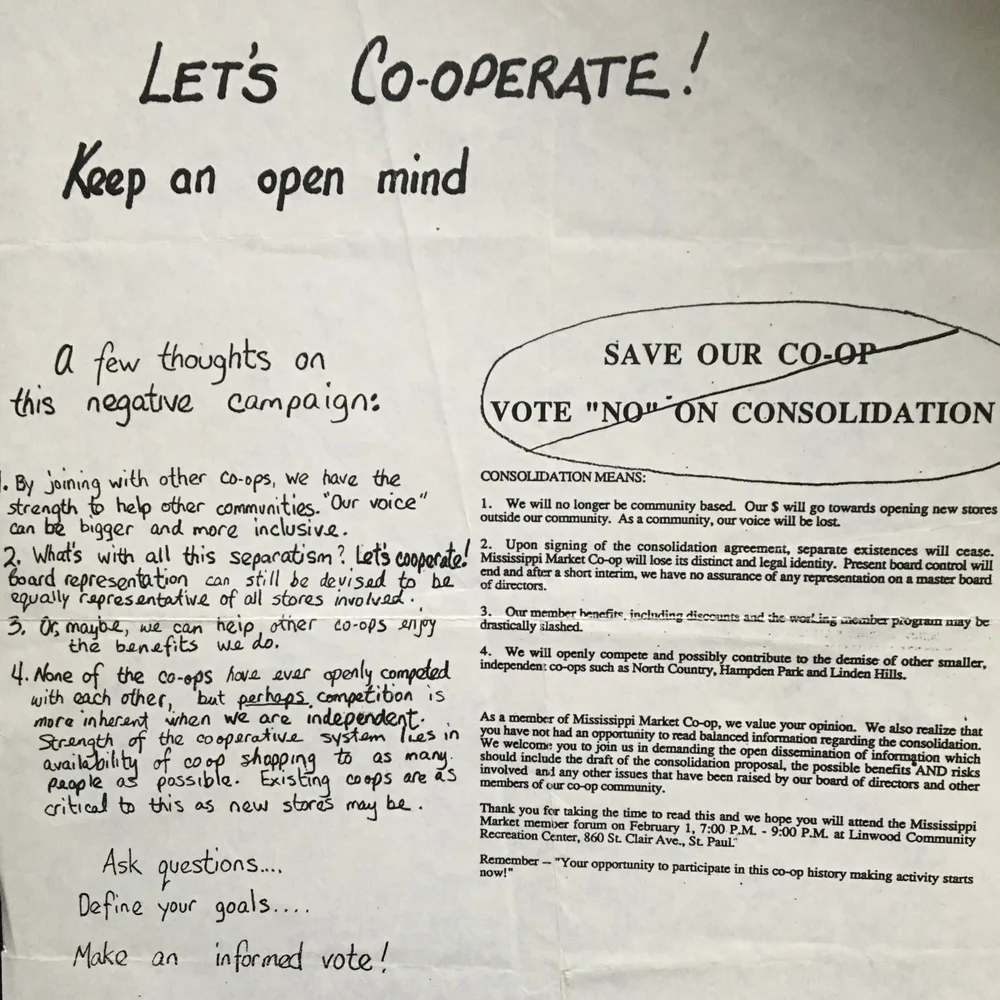 LET'S CO-OPERATE!
Keep an open mind
A few thoughts on
this negative campaign:
1. By joining with other co-ops, we have the
strength to help other communities. "Our voice"
can be bigger and more inclusive.
2. What's with all this separatism? Let's cooperate!
Board representation can still be devised to be
equally representative of all stores involved.
3. Or, maybe, we can help other co-ops enjoy
the benefits we do.
4. None of the co-ops have ever openly competed
with each other, but perhaps competition is
more inherent when we are independent.
Strength of the cooperative system lies in
availability of coop shopping to as many
people as possible. Existing coops are as
critical to this as new stores may be.
Ask questions....
Define your goals....
Make an informed vote!
SAVE OUR CO-OP
VOTE "NO" ON CONSOLIDATION
CONSOLIDATION MEANS:
1. We will no longer be community based. Our $ will go towards opening new stores
outside our community. As a community, our voice will be lost.
2. Upon signing of the consolidation agreement, separate existences will cease.
Mississippi Market Co-op will lose its distinct and legal identity. Present board control will
end and after a short interim, we have no assurance of any representation on a master board
of directors.
3. Our member benefits, including discounts and the working member program may be
drastically slashed.
4. We will openly compete and possibly contribute to the demise of other smaller,
independent co-ops such as North Country, Hampden Park and Linden Hills.
As a member of Mississippi Market Co-op, we value your opinion. We also realize that
you have not had an opportunity to read balanced information regarding the consolidation.
We welcome you to join us in demanding the open dissemination of information which
should include the draft of the consolidation proposal, the possible benefits AND risks
involved and any other issues that have been raised by our board of directors and other
members of our co-op community.
Thank you for taking the time to read this and we hope you will attend the Mississippi
Market member forum on February 1, 7:00 P.M. - 9:00 P.M. at Linwood Community
Recreation Center, 860 St. Clair Ave., St. Paul."
Remember -- "Your opportunity to participate in this co-op history making activity starts
now!"